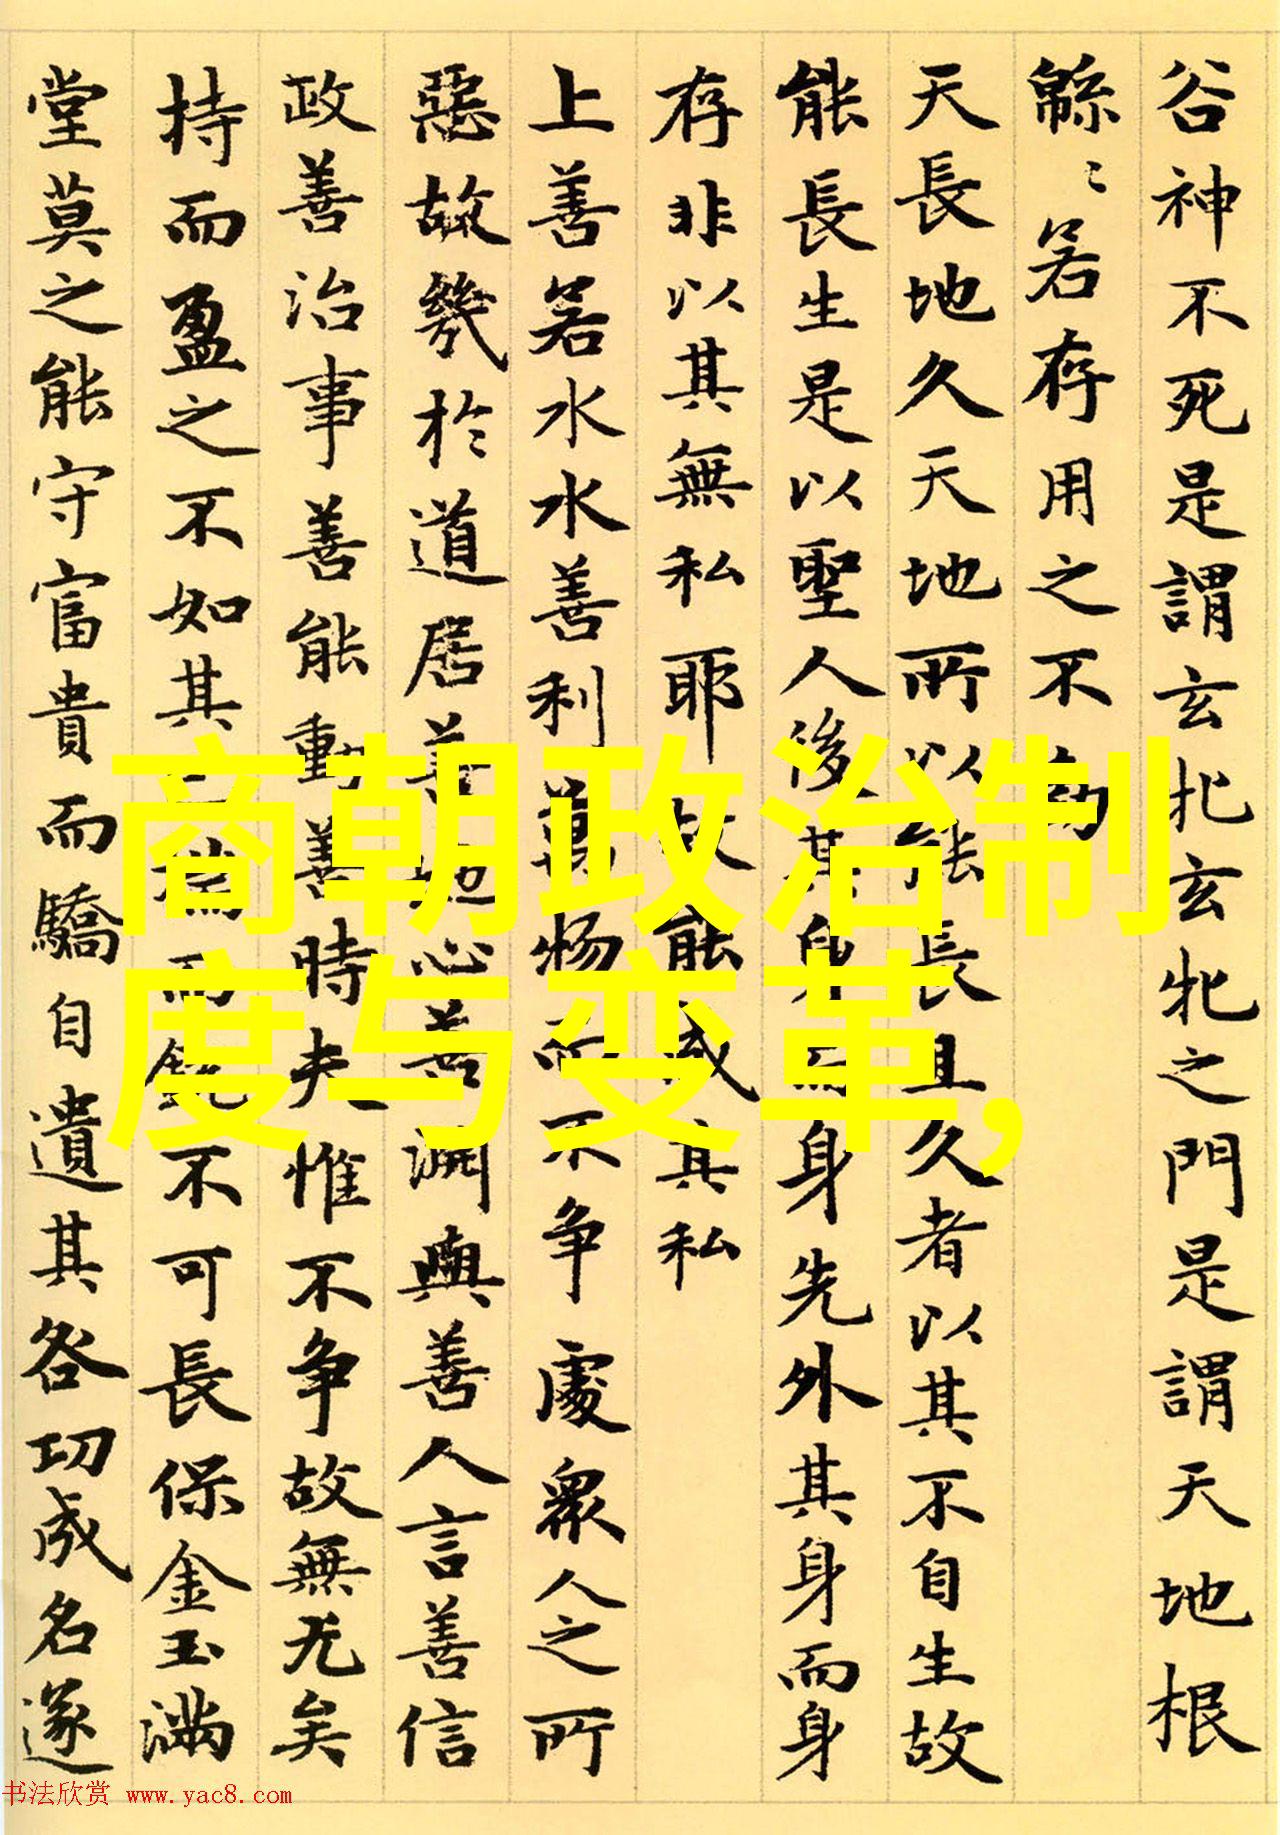 谷神不死是謂玄牝玄牝之門是謂天地根
緜〻若存用之不勤
天長地久天地所以能長且久者以其不自生故
能長生是以聖人後其身而身先外其身而身
存非以其無私耶故能成其私
上善若水水善利萬物而不争處衆人之所
惡故幾於道居善地心善渊與善人言善信
政善治事善能動善時夫惟不争故無尤矣
持而盈之不如其已揣而銳不可長保金玉滿
堂莫之能守富貴而驕自遺其咎功成名遂
商朝政治制
度与变革,
书法欣赏 www.yac8.com